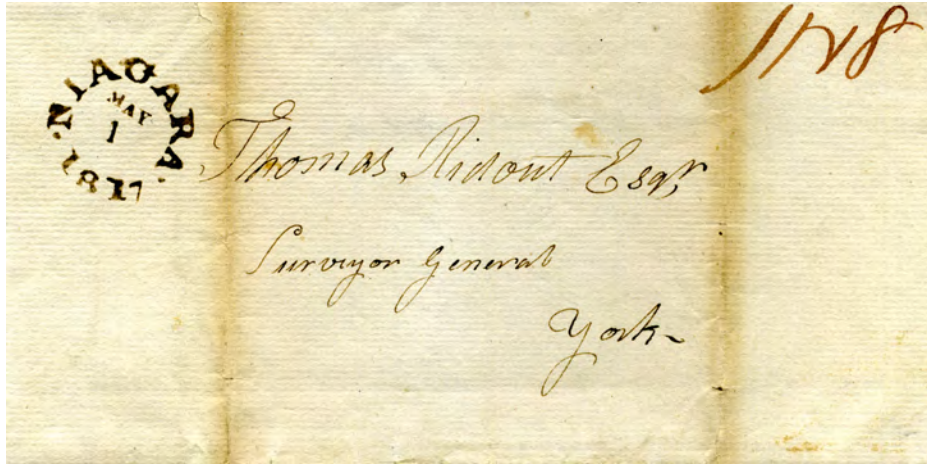 NIAGARA.
MAY
1
1817
Thomas Ridout Esqr
Surveyor General
York